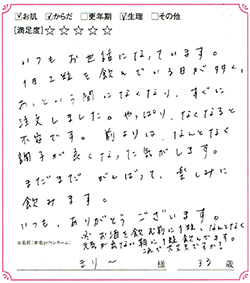 ☑お肌 ☑からだ □更年期 ☑生理 □その他
[満足度]☆☆☆☆☆
いつもお世話になっています。
1日2粒を飲んでいる日が多く、
あっという間になくなり、すぐに
注文しました。やっぱり、なくなると
不安です。前よりは、なんとなく
調子が良くなった気がします。
まだまだがんばって、楽しみに
飲みます。
いつも、ありがとうございます。
※お酒を飲む前に1粒、なんとなく
元気が出ない時に1粒飲んでます。
これで大丈夫ですか?
お名前[本名orペンネーム] まり〜 様 33 歳